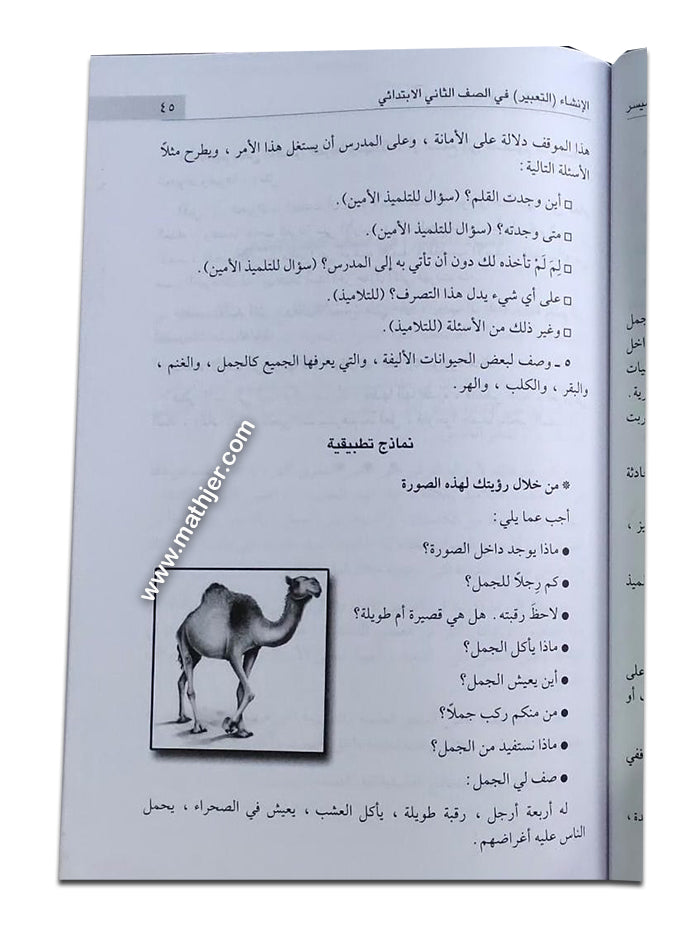 الإنشاء (التعبير) في الصف الثاني الابتدائي
٤٥
هذا الموقف دلالة على الأمانة ، وعلى المدرس أن يستغل هذا الأمر ، ويطرح مثلاً
الأسئلة التالية:
□ أين وجدت القلم؟ (سؤال للتلميذ الأمين).
□ متى وجدته؟ (سؤال للتلميذ الأمين).
□ لِمَ لَمْ تأخذه لك دون أن تأتي به إلى المدرس؟ (سؤال للتلميذ الأمين).
□ على أي شيء يدل هذا التصرف؟ (للتلاميذ).
□ وغير ذلك من الأسئلة (للتلاميذ).
٥ ـ وصف لبعض الحيوانات الأليفة ، والتي يعرفها الجميع كالجمل ، والغنم ،
والبقر ، والكلب ، والهر.
نماذج تطبيقية
* من خلال رؤيتك لهذه الصورة
أجب عما يلي:
● ماذا يوجد داخل الصورة؟
● كم رِجلاً للجمل؟
● لاحظَ رقبته. هل هي قصيرة أم طويلة؟
● ماذا يأكل الجمل؟
● أين يعيش الجمل؟
● من منكم ركب جملاً؟
● ماذا نستفيد من الجمل؟
● صف لي الجمل:
له أربعة أرجل ، رقبة طويلة ، يأكل العشب ، يعيش في الصحراء ، يحمل
الناس عليه أغراضهم.
www.mathjer.com